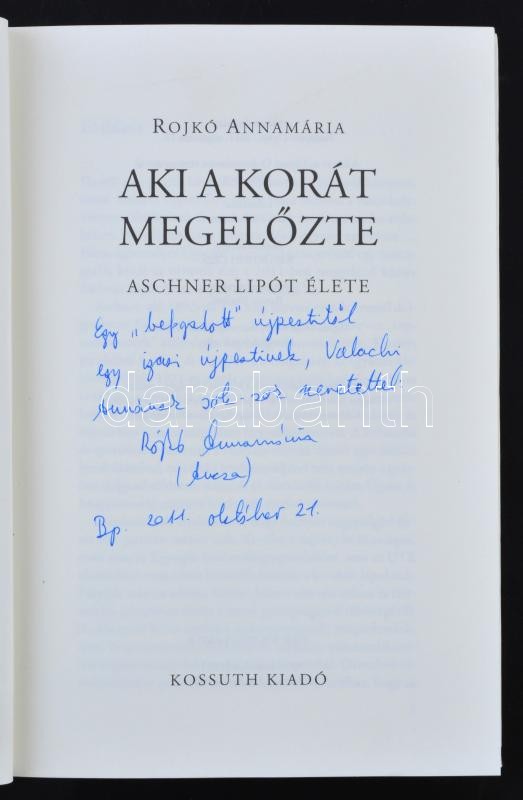 ROJKÓ ANNAMÁRIA
AKI A KORÁT
MEGELŐZTE
ASCHNER LIPÓT ÉLETE
Egy „befogadott" újpestitől
egy igazi újpestinek, Valachi
Annának sok-sok szeretettel:
Rojkó Annamária
(Ancsa)
Bp. 2011. október 21.
darabanth
KOSSUTH KIADÓ